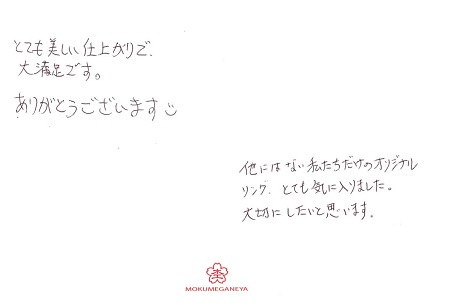 とても美しい仕上がりで、
大満足です。
ありがとうございます
他にはない私たちだけのオリジナル
リング、とても気に入りました。
大切にしたいと思います。
MOKUMEGANEYA